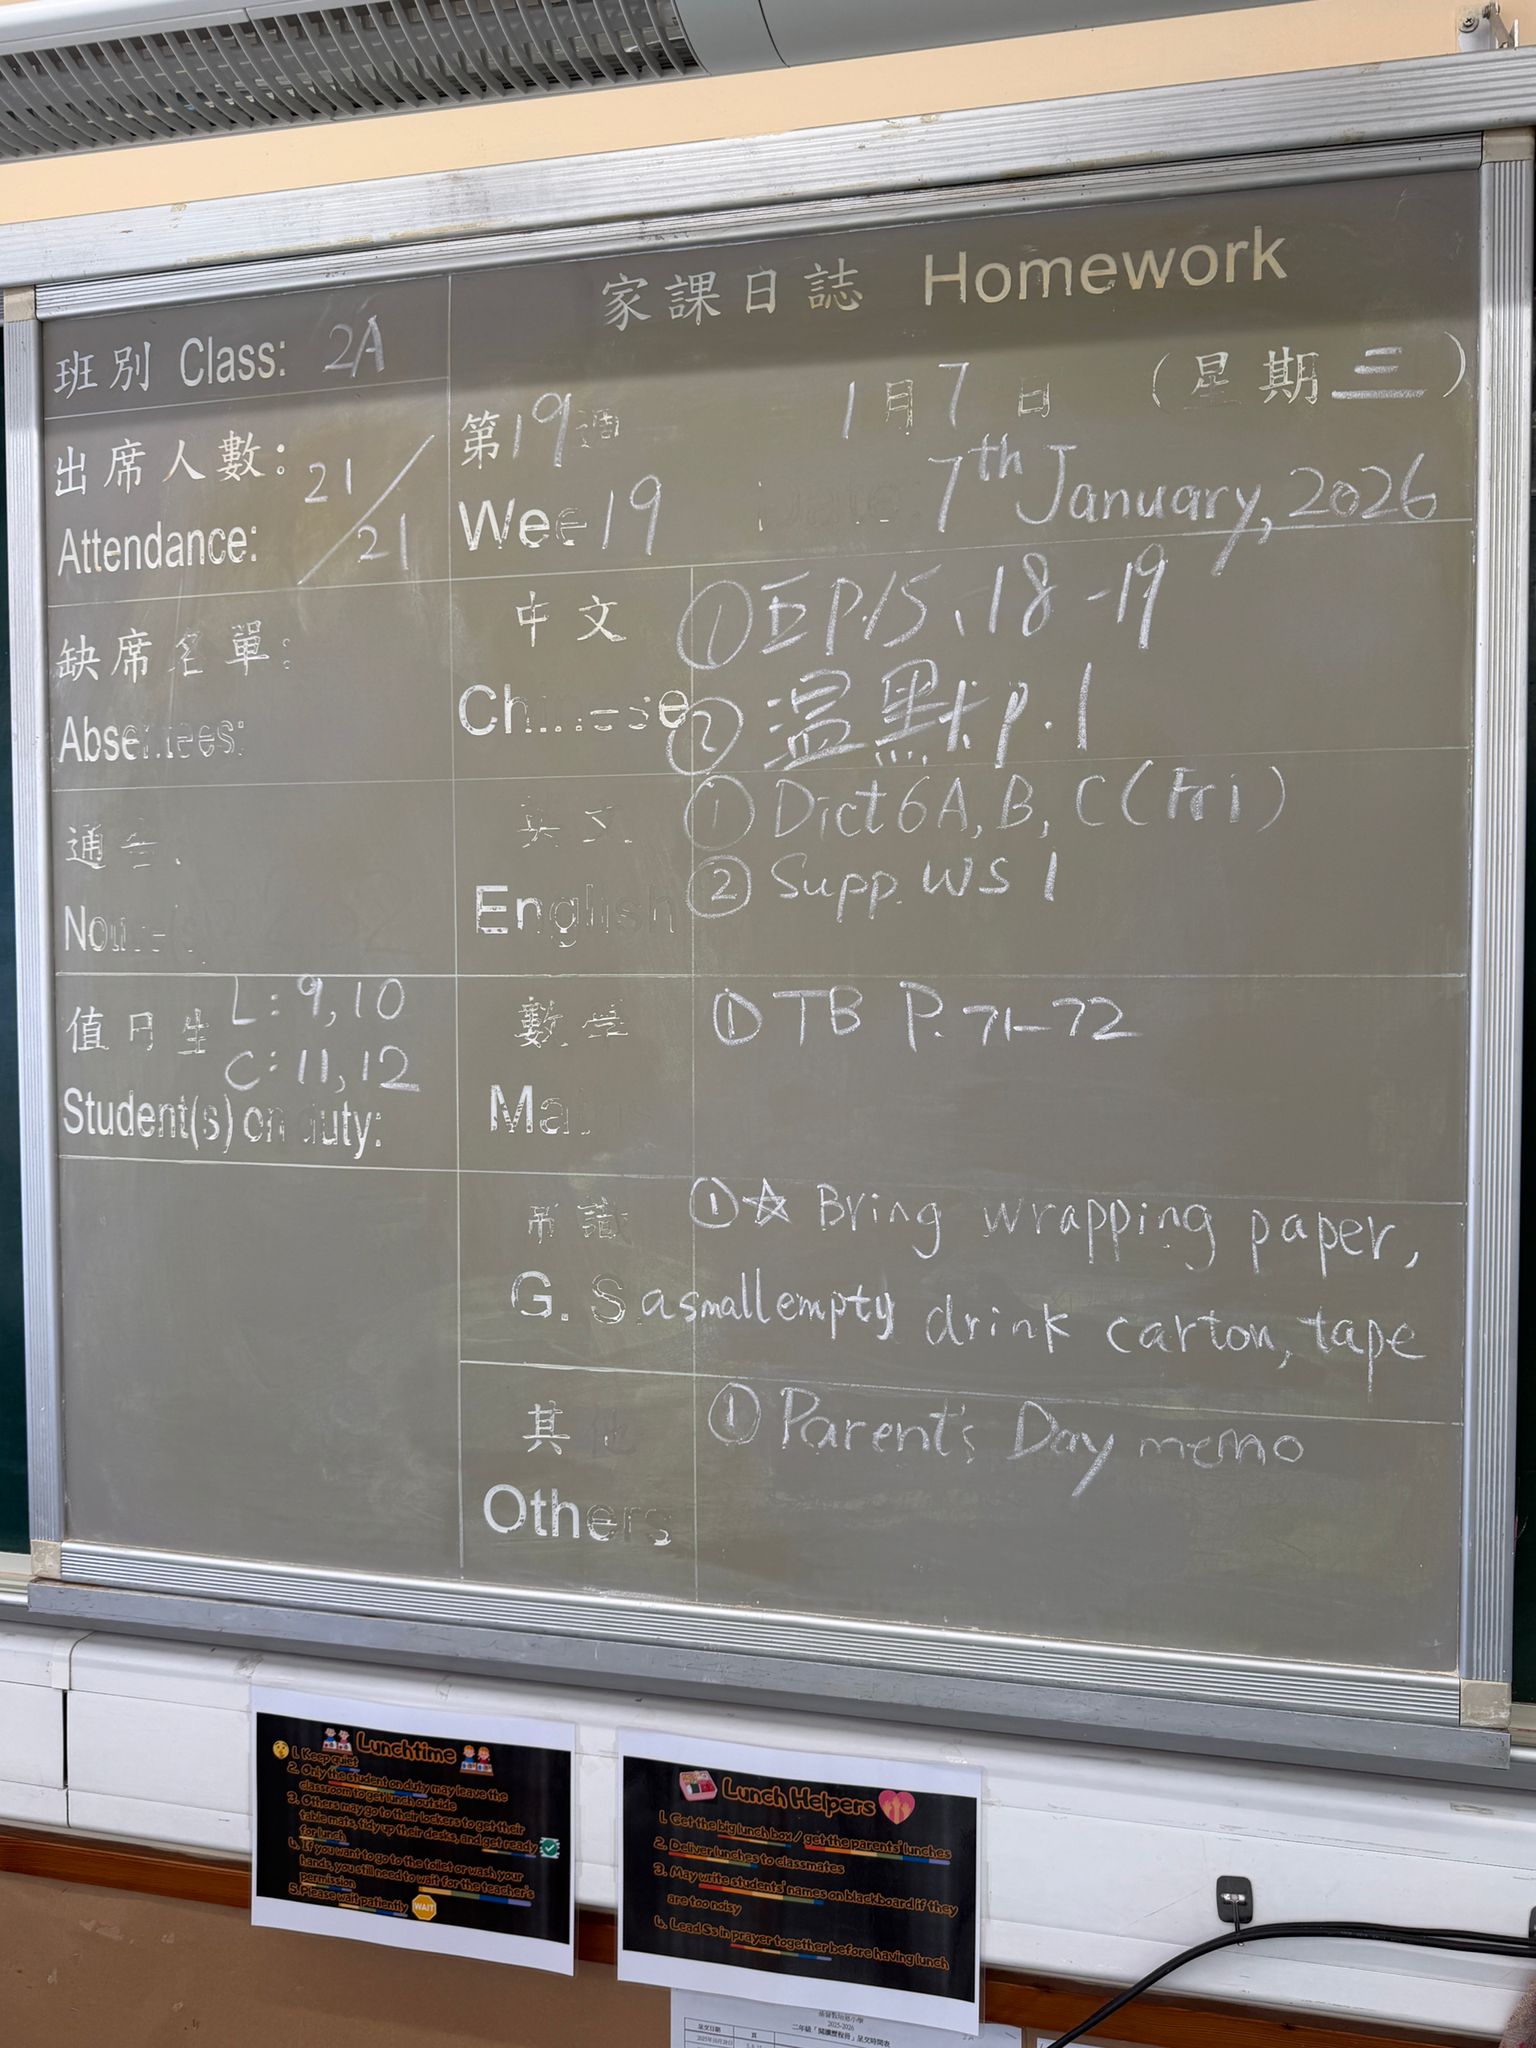 家課日誌 Homework
班別 Class: 2A
出席人數: 21/21
Attendance:
缺席名單:
Absentees:
通告:
值日生 L: 9, 10
C: 11, 12
Student(s) on duty:
第19週 1月7日 (星期三)
Wee 19 Date: 7th January, 2026
中文 ① P.15、18-19
Chinese ② 溫默 p.1
英文 ① Dict 6A, B, C (Fri)
English ② Supp. WS 1
數學 ① TB P. 71-72
Maths
常識 ① ☆ Bring wrapping paper,
G. S. a small empty drink carton, tape
其他 ① Parent's Day memo
Others
Lunchtime
1. Keep quiet
2. Only the student on duty may leave the
classroom to get lunch outside
3. Others may go to their lockers to get their
table mats, tidy up their desks, and get ready
for lunch
4. If you want to go to the toilet or wash your
hands, you still need to wait for the teacher's
permission
5. Please wait patiently WAIT
Lunch Helpers
1. Get the big lunch box / get the parents' lunches
2. Deliver lunches to classmates
3. May write students' names on blackboard if they
are too noisy
4. Lead Ss in prayer together before having lunch
2025-2026
呈交日期 頁